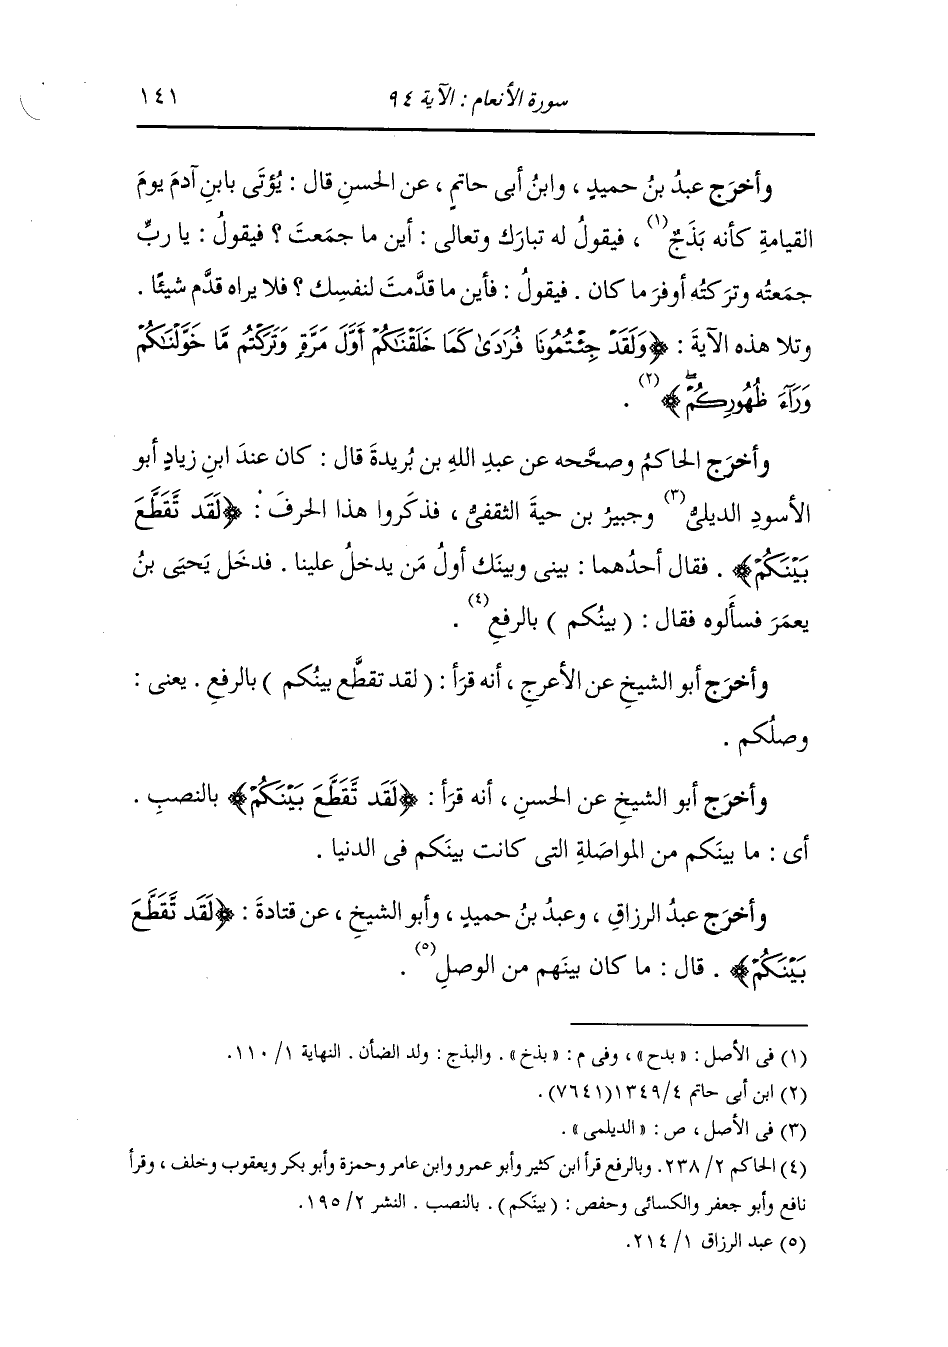 سورة الأنعام : الآية ٩٤ ١٤١
وأخرَج عبدُ بنُ حميدٍ ، وابنُ أبى حاتمٍ ، عن الحسنِ قال : يُؤتَى بابنِ آدمَ يومَ
القيامةِ كأنه بَذَجٌ(١) ، فيقولُ له تبارَك وتعالى : أين ما جمَعتَ ؟ فيقولُ : يا ربِّ
جمَعتُه وترَكتُه أوفرَ ما كان . فيقولُ : فأين ما قدَّمتَ لنفسِك ؟ فلا يراه قدَّم شيئًا .
وتلا هذه الآيةَ : ﴿وَلَقَدْ جِئْتُمُونَا فُرَادَىٰ كَمَا خَلَقْنَاكُمْ أَوَّلَ مَرَّةٍ وَتَرَكْتُم مَّا خَوَّلْنَاكُمْ
وَرَآءَ ظُهُورِكُمْ ۖ﴾(٢) .
وأخرَج الحاكمُ وصحَّحه عن عبدِ اللهِ بن بُريدةَ قال : كان عندَ ابنِ زيادٍ أبو
الأسودِ الديلىُّ(٣) وجبيرُ بن حيةَ الثقفىُّ ، فذكَروا هذا الحرفَ : ﴿لَقَد تَّقَطَّعَ
بَيْنَكُمْ﴾ . فقال أحدُهما : بينى وبينَك أولُ مَن يدخلُ علينا . فدخَل يَحيَى بنُ
يعمَرَ فسأَلوه فقال : ( بينُكم ) بالرفعِ(٤) .
وأخرَج أبو الشيخِ عن الأعرجِ ، أنه قرَأ : ( لقد تقطَّع بينُكم ) بالرفعِ . يعنى :
وصلُكم .
وأخرَج أبو الشيخِ عن الحسنِ ، أنه قرَأ : ﴿لَقَد تَّقَطَّعَ بَيْنَكُمْ﴾ بالنصبِ .
أى : ما بينَكم من المواصَلةِ التى كانت بينَكم فى الدنيا .
وأخرَج عبدُ الرزاقِ ، وعبدُ بنُ حميدٍ ، وأبو الشيخِ ، عن قتادةَ : ﴿لَقَد تَّقَطَّعَ
بَيْنَكُمْ﴾ . قال : ما كان بينَهم من الوصلِ(٥) .
(١) فى الأصل : « بدح » ، وفى م : « بذخ » . والبذج : ولد الضأن . النهاية ١/ ١١٠.
(٢) ابن أبى حاتم ٤/ ١٣٤٩(٧٦٤١) .
(٣) فى الأصل ، ص : « الديلمى » .
(٤) الحاكم ٢/ ٢٣٨. وبالرفع قرأ ابن كثير وأبو عمرو وابن عامر وحمزة وأبو بكر ويعقوب وخلف ، وقرأ
نافع وأبو جعفر والكسائى وحفص : ( بينَكم ) . بالنصب . النشر ٢/ ١٩٥.
(٥) عبد الرزاق ١/ ٢١٤.